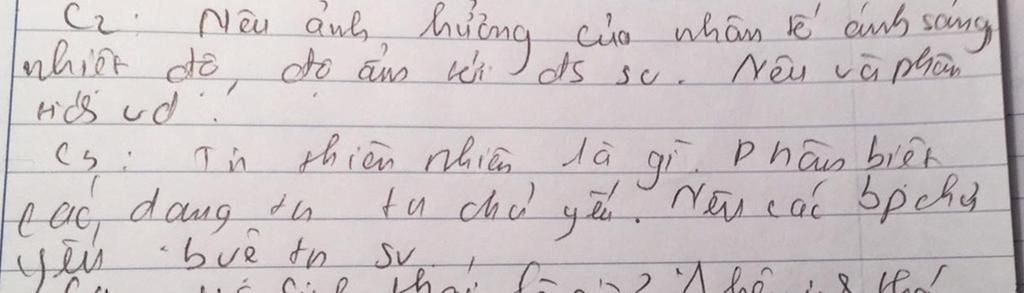 C2: Nêu ảnh hưởng của nhân tố ánh sáng
nhiệt độ, độ ẩm tới đs sv. Nêu và phân
tích vd.
C3: Tn thiên nhiên là gì. Phân biệt
các dạng tn tn chủ yếu. Nêu các bp chủ
yếu bvệ tn sv.